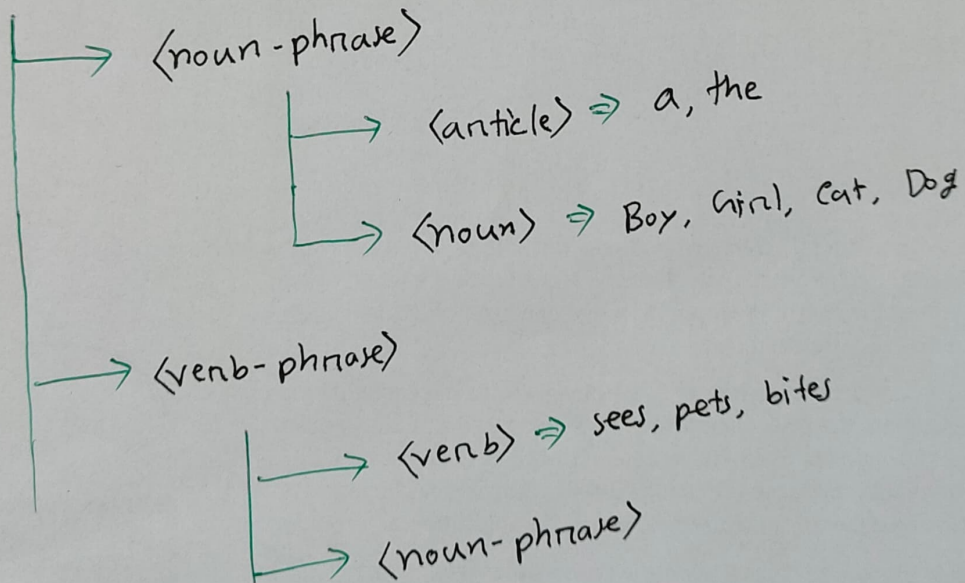 <noun-phrase>
<article> ⇒ a, the
<noun> ⇒ Boy, Girl, Cat, Dog
<verb-phrase>
<verb> ⇒ sees, pets, bites
<noun-phrase>